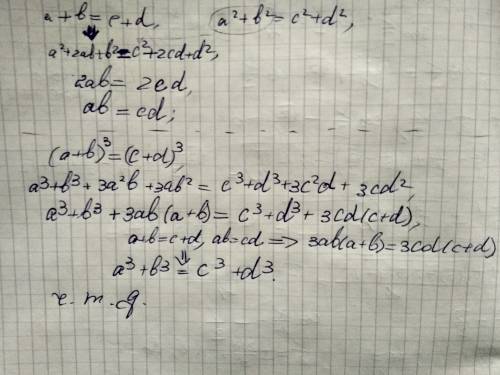 a + b = c + d,   a² + b² = c² + d²,
⇓
a² + 2ab + b² = c² + 2cd + d²,
2ab = 2cd,
ab = cd;
(a+b)³ = (c+d)³,
a³ + b³ + 3a²b + 3ab² = c³ + d³ + 3c²d + 3cd²,
a³ + b³ + 3ab(a+b) = c³ + d³ + 3cd(c+d),
a+b = c+d, ab = cd ⟹ 3ab(a+b) = 3cd(c+d)
⇓
a³ + b³ = c³ + d³.
ч. т. д.